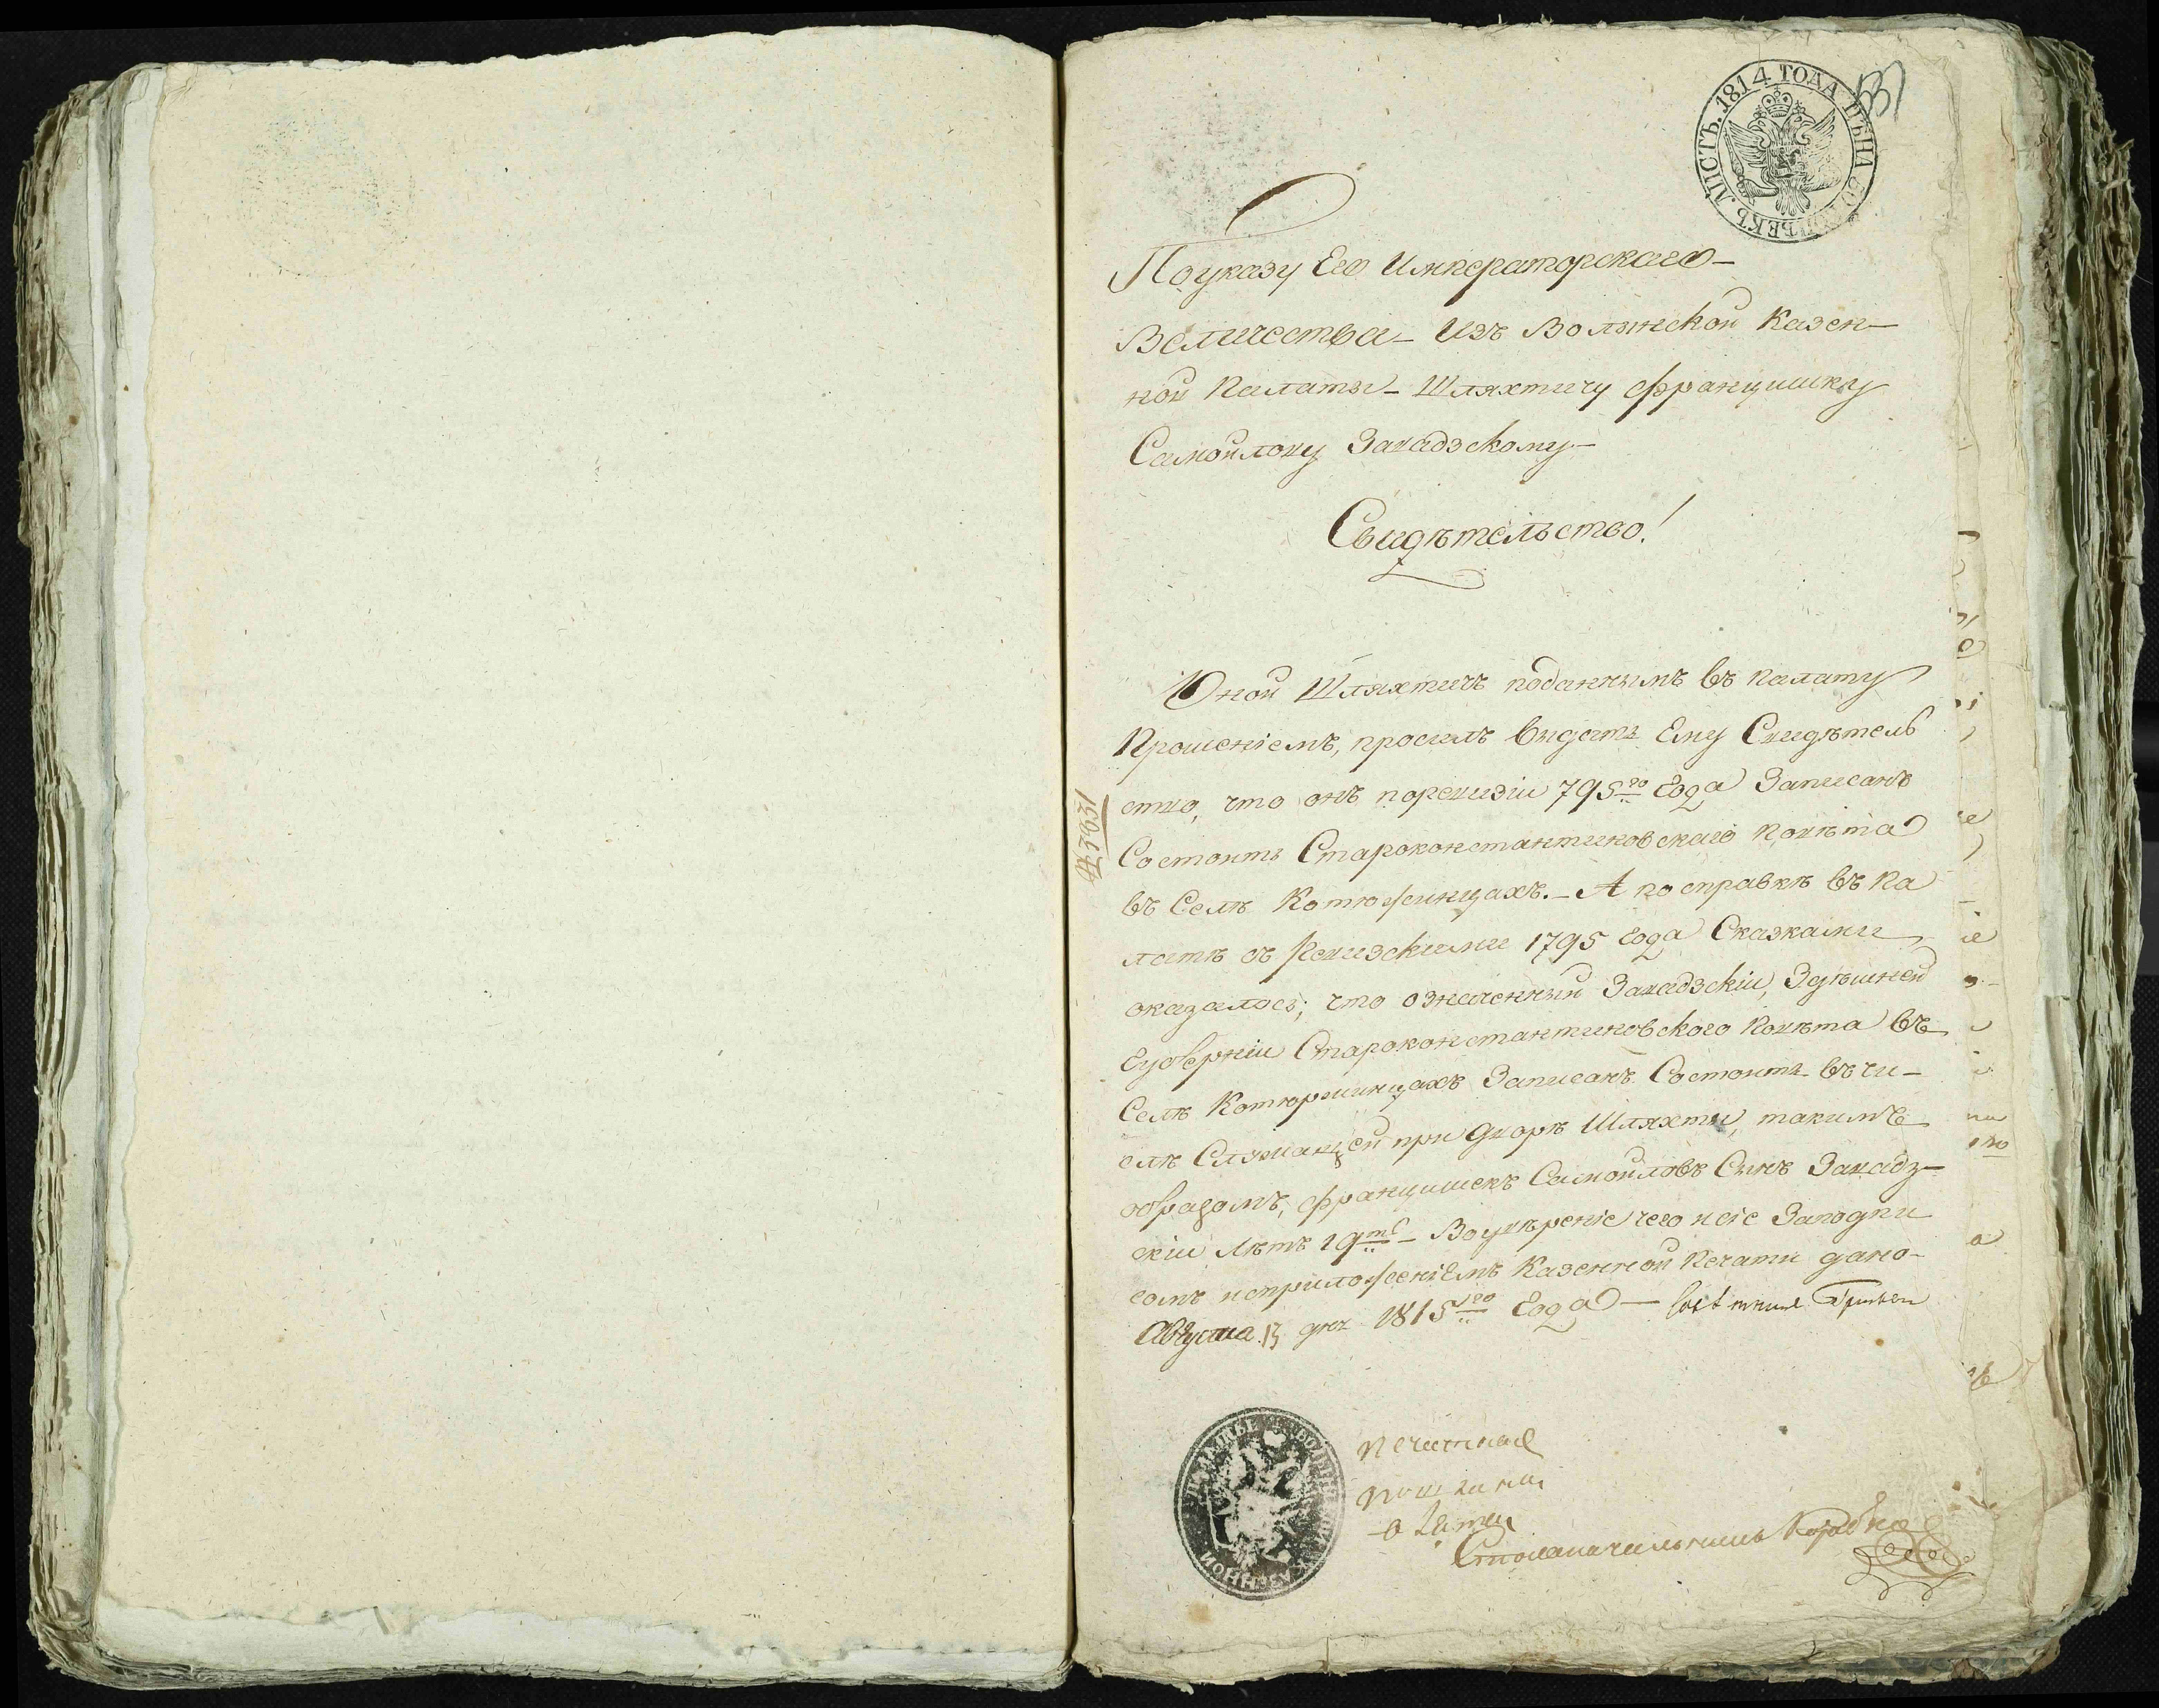 ЛИСТЪ. 1814 ГОДА ЦѢНА 50 КОПѢЕКЪ
По указу Его Императорскаго
Величества Изъ Волынской Казен-
ной Палаты Шляхтичу Францишку
Самойлову Завадзскому
Свидѣтельство!
Оной Шляхтичъ поданнымъ въ палату
Прошеніемъ, просилъ выдать Ему Свидѣтель
ство, что онъ поревизіи 795го Года Записанъ
Состоитъ Староконстантиновскаго повѣта
въ Селѣ Котюжинцахъ. – А по справкѣ въ Па
латѣ съ Ревизскими 1795 года Сказками
оказалось; что означенный Завадзскій, Здѣшней
Губерніи Староконстантиновского Повѣта въ
Селѣ Котюржинцахъ Записанъ Состоитъ въ чи-
слѣ Служащей при дворѣ Шляхты, такимъ
образомъ, Францишекъ Самойловъ Сынъ Завадз-
скій Лѣтъ 19ть – Воувѣреніе чего и сіе Заподпи
сомъ исприложеніемъ Казенной Печати дано
Августа 13 дня 1815го Года –
№ 7651
Печатная
пошлина
взята
Столоначальникъ